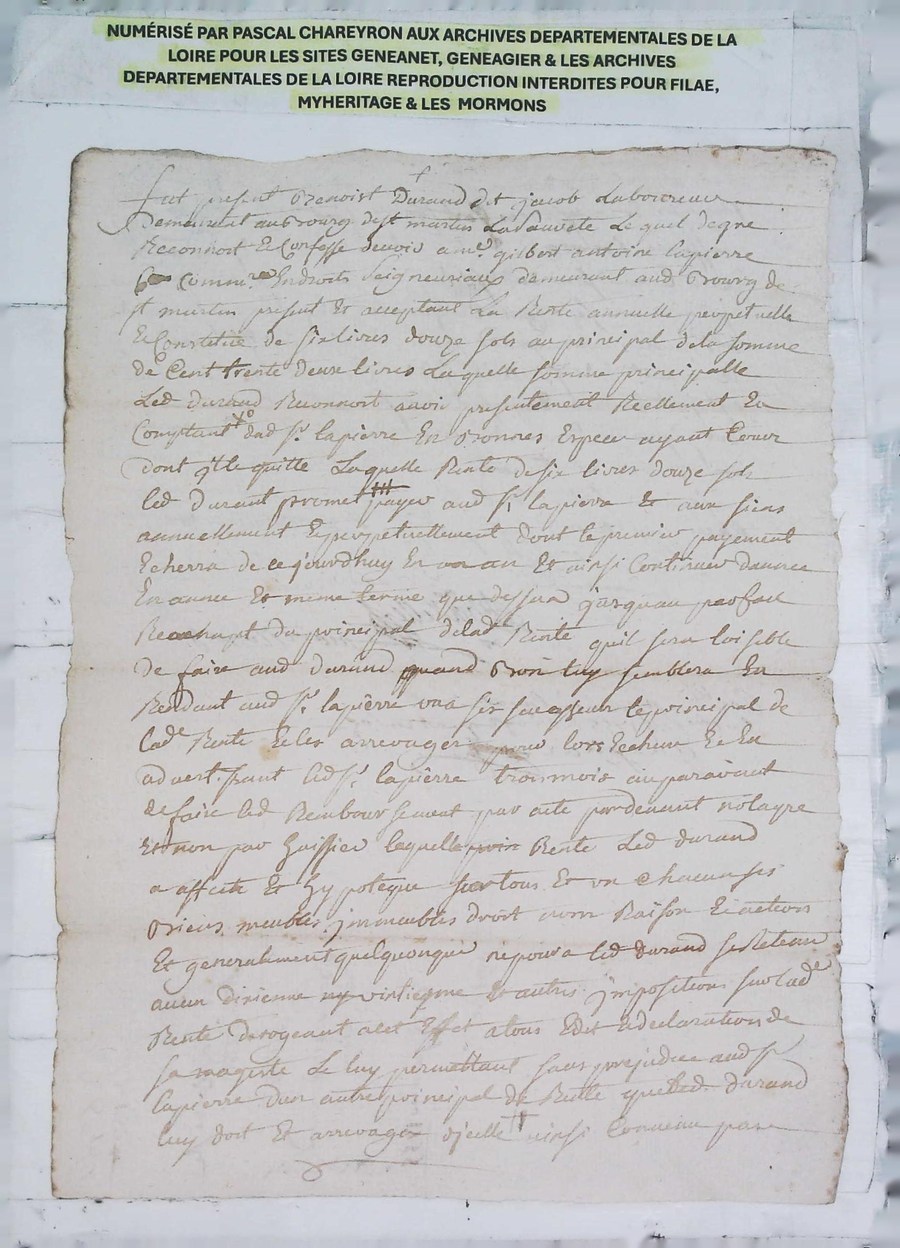 NUMÉRISÉ PAR PASCAL CHAREYRON AUX ARCHIVES DEPARTEMENTALES DE LA
LOIRE POUR LES SITES GENEANET, GENEAGIER & LES ARCHIVES
DEPARTEMENTALES DE LA LOIRE REPRODUCTION INTERDITES POUR FILAE,
MYHERITAGE & LES MORMONS
fut present Benoist Durand dit jacob Laboureur
Demeurant au Bourg de st martin La Sauveté Lequel de gré
Reconnoit Et Confesse devoir a me gilbert antoine lapierre
Commre En droits Seigneuriaux demeurant aud Bourg de
st martin present Et acceptant La Rente annuelle perpetuelle
Et Constituée de six livres douze sols au principal de la somme
de Cent trente deux livres Laquelle somme principalle
Led durand Reconnoit avoir presentement Reellement En
Comptant dud sr lapierre En Bonnes Espece ayant Cour
dont il le quitte Laquelle Rente de six livres douze sols
led durant promet payer aud sr lapierre Et aux siens
annuellement Et perpetuellement dont le premier payement
Echerra de ce jourdhuy En un an Et ainsi Continuer dannée
En année Et meme terme que dessus jusquau parfait
Reachapt du principal delad Rente quil sera loisible
de faire aud durand quand Bon luy semblera En
Rendant aud sr lapierre ou a ses le principal de
lade Rente Et les arrerages pour lors Echeux Et En
advertissant led sr lapierre trois mois auparavant
de faire led Remboursement par acte pardevant notayre
Et non par huissier laquelle Rente Led durand
a affecté Et hypotequé sur tous Et un chacun ses
Biens meubles immeubles droit nom Raison Et actions
Et generalement quelquonque ne poura led durand se Retenir
aucun dixieme ny vintieme Et autres impositions sur lade
Rente derogeant a cet Effet a tous Edit Et declaration de
sa magesté Le luy permettant sans prejudice aud sr
lapierre dun autre principal de Rente que led durand
luy doit Et arrerages dicelle ainsi Convenu par